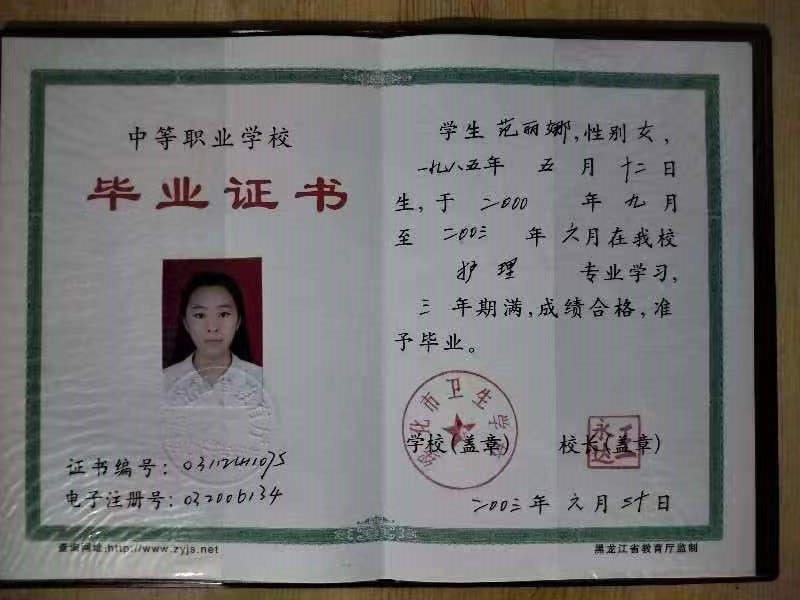 中等职业学校
毕业证书
证书编号：0311241075
电子注册号：032006134
查询网址:http://www.zyjs.net
学生 范丽娜,性别女,
一九八五年 五 月 十二 日
生,于 二000 年 九 月
至 二00三 年 六月在我校
护理 专业学习,
三 年期满,成绩合格,准
予毕业。
绥化市卫生学校
学校(盖章) 校长(盖章)
二00三年 六 月 三十日
黑龙江省教育厅监制